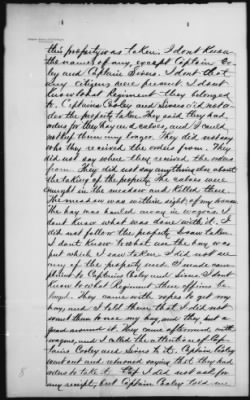 this property was taken. I dont know
the names of any, except Captain Co-
ley and Captain Sivers. I dont that
any citizens were present. I dont
know what Regiment they belonged
to. Captains Cooley and Sivers did not or-
der the property taken. They said they had
orders for the hay and calves, and I could
not buy them any longer. They did not say
who they received the orders from. They
did not say where they received the orders
from. They did not say anything else about
the taking of the property. The calves were
caught in the meadow and killed there
The meadow was within sight of my house
The hay was hauled away in wagons. I
dont know what was done with it. I
did not follow the property taken.
I dont know to what use the hay was
put which I saw taken. I did not see
any of the property used. I made com-
plaint to Captains Cooley and Sivers. I dont
know to what Regiment these officers be-
longed. They came with ropes to get my
hay, and I told them that I did not
want them to use my hay, and they had a
guard around it. They came afterwards with
wagons, and I called the attention of Cap-
tains Cooley and Sivers to it. Captain Cooley
went out and returned saying that they had
orders to take it. I did not ask for
any receipt, but Captain Cooley told me
8